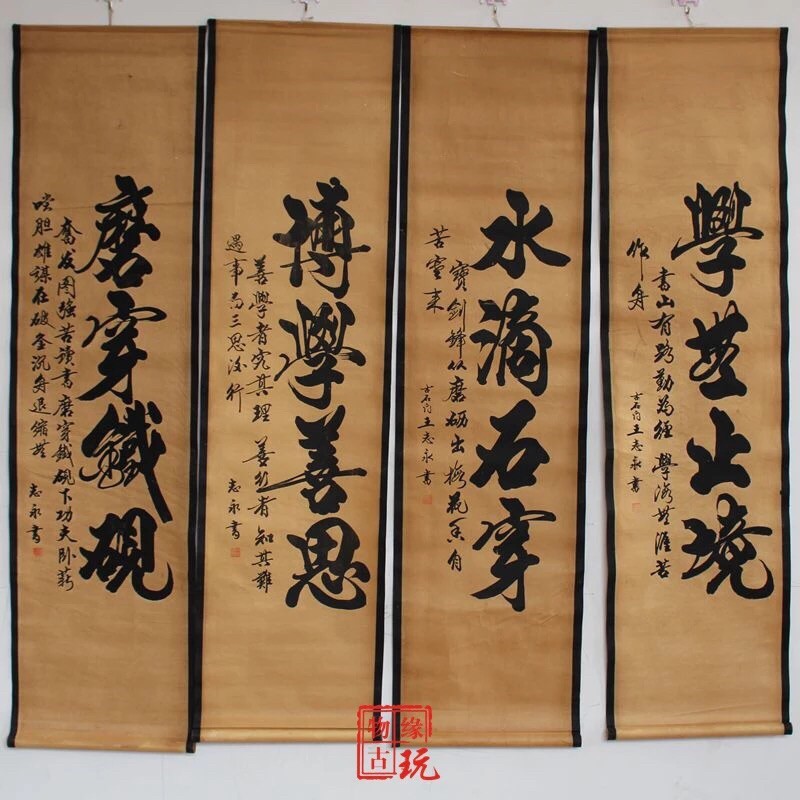 學無止境
書山有路勤為徑 學海無涯苦
作舟
古石門王志永書
水滴石穿
寶劍鋒从磨砺出梅花香自
苦寒来
古石門王志永書
博學善思
善學者究其理 善行者知其難
遇事三思後行
志永書
磨穿鐵硯
奮发图强苦讀書磨穿鐵硯下功夫卧薪
嘗胆雄謀在破釜沉舟退縮無
志永書
物缘古玩